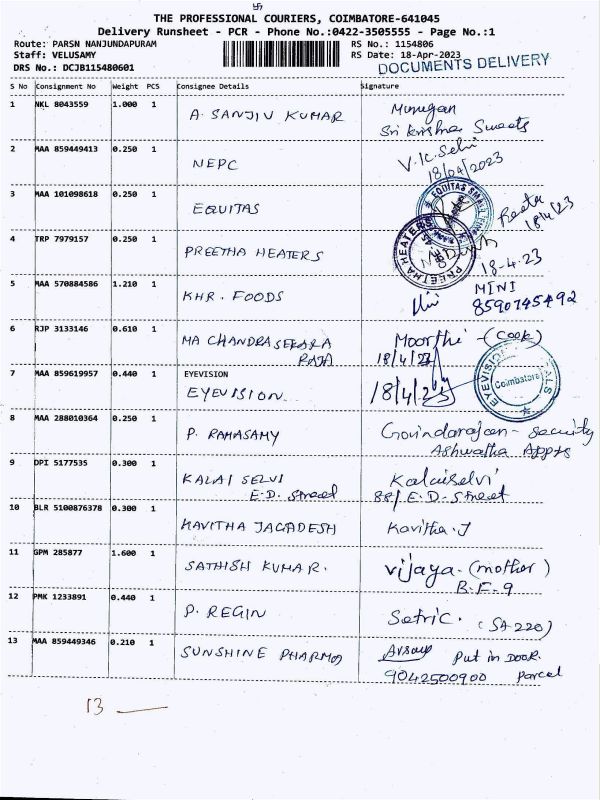 卐
THE PROFESSIONAL COURIERS, COIMBATORE-641045
Delivery Runsheet - PCR - Phone No.:0422-3505555 - Page No.:1
Route: PARSN NANJUNDAPURAM
Staff: VELUSAMY
DRS No.: DCJB115480601
RS No.: 1154806
RS Date: 18-Apr-2023
DOCUMENTS DELIVERY
S No Consignment No Weight PCS Consignee Details Signature
1 NKL 8043559 1.000 1 A. SANJIV KUMAR Murugan
Sri Krishna Sweets
2 MAA 859449413 0.250 1 NEPC V.K. Selvi
18/04/2023
3 MAA 101098618 0.250 1 EQUITAS Reeta
18/4/23
EQUITAS SMALL
4 TRP 7979157 0.250 1 PREETHA HEATERS
18-4.23
PREETHA HEATERS
5 MAA 570884586 1.210 1 KHR. FOODS MINI
8590745492
6 RJP 3133146 0.610 1 MA CHANDRASEKARA Moorthi - (Cook)
RAJA 18/4/23
7 MAA 859619957 0.440 1 EYEVISION
EYEVISION 18/4/23
EYEVISION Coimbatore
8 MAA 288010364 0.250 1 P. RAMASAMY Govindarajan - Security
Ashwatha Appts
9 DPI 5177535 0.300 1 KALAI SELVI Kalaiselvi
E.D. Street 88/ E.D. Street
10 BLR 5100876378 0.300 1 KAVITHA JAGADESH Kavitha.J
11 GPM 285877 1.600 1 SATHISH KUMAR. vijaya. (mother)
B.F-9
12 PMK 1233891 0.440 1 P. REGIN (SA 220)
13 MAA 859449346 0.210 1 SUNSHINE PHARMA Put in Door.
9042500900 parcel
13